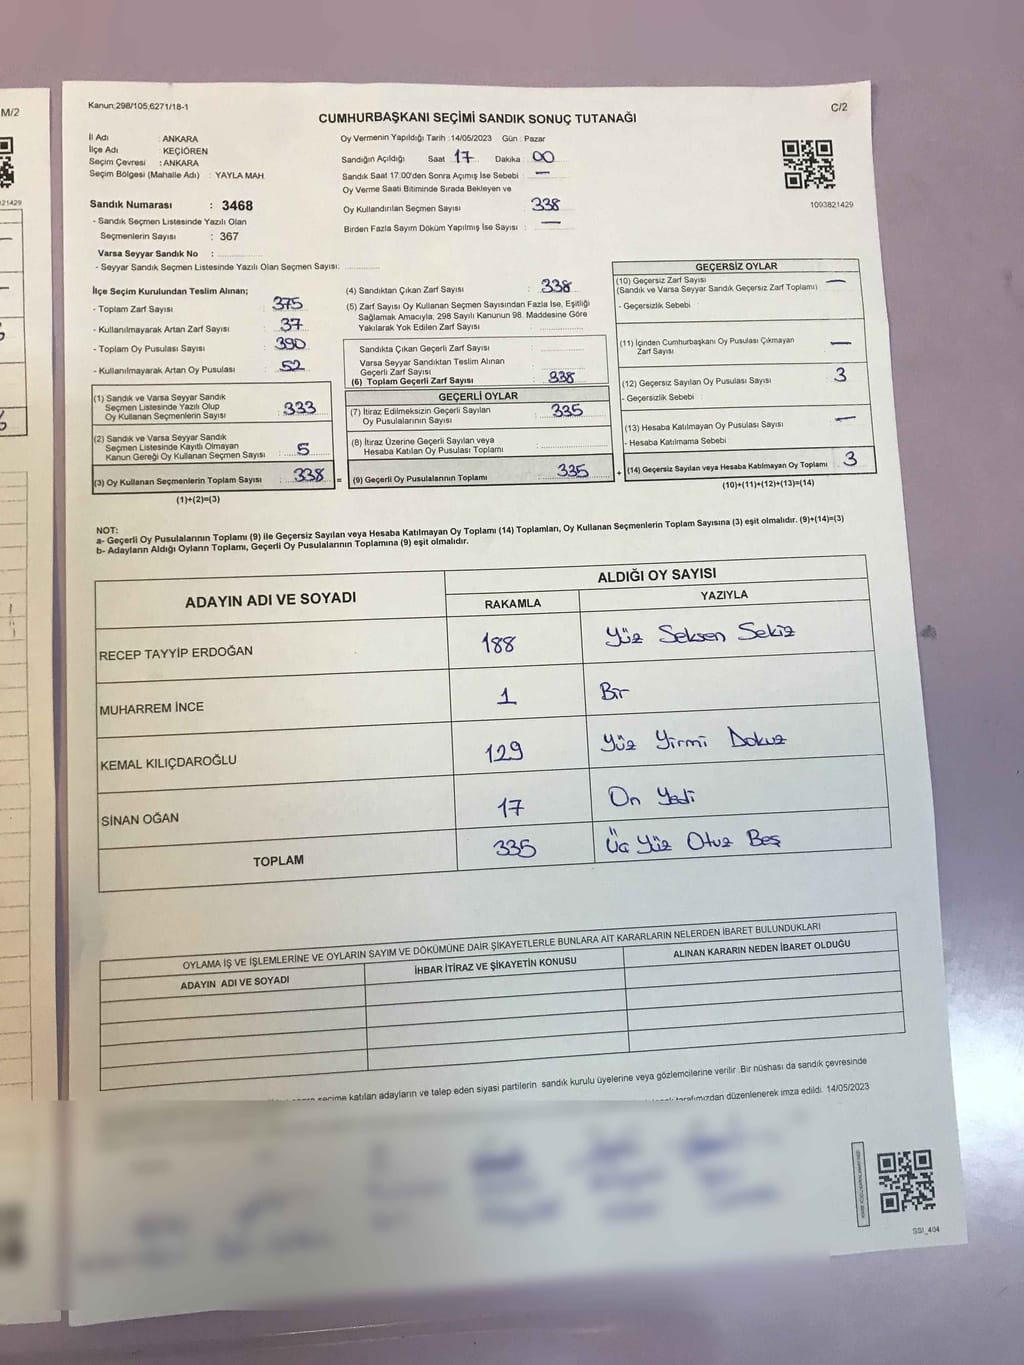 M/2
21429
Kanun:298/105,6271/18-1
C/2
CUMHURBAŞKANI SEÇİMİ SANDIK SONUÇ TUTANAĞI
İl Adı : ANKARA
İlçe Adı : KEÇİÖREN
Seçim Çevresi : ANKARA
Seçim Bölgesi (Mahalle Adı) : YAYLA MAH.
Sandık Numarası : 3468
- Sandık Seçmen Listesinde Yazılı Olan
Seçmenlerin Sayısı : 367
Varsa Seyyar Sandık No :
- Seyyar Sandık Seçmen Listesinde Yazılı Olan Seçmen Sayısı:
Oy Vermenin Yapıldığı Tarih :14/05/2023 Gün : Pazar
Sandığın Açıldığı Saat 17 Dakika : 00
Sandık Saat 17:00'den Sonra Açımış İse Sebebi : —
Oy Verme Saati Bitiminde Sırada Bekleyen ve
Oy Kullandırılan Seçmen Sayısı 338
Birden Fazla Sayım Döküm Yapılmış İse Sayısı : —
1093821429
İlçe Seçim Kurulundan Teslim Alınan;
- Toplam Zarf Sayısı : 375
- Kullanılmayarak Artan Zarf Sayısı : 37
- Toplam Oy Pusulası Sayısı : 390
- Kullanılmayarak Artan Oy Pusulası : 52
(1) Sandık ve Varsa Seyyar Sandık
Seçmen Listesinde Yazılı Olup
Oy Kullanan Seçmenlerin Sayısı : 333
(2) Sandık ve Varsa Seyyar Sandık
Seçmen Listesinde Kayıtlı Olmayan
Kanun Gereği Oy Kullanan Seçmen Sayısı : 5
(3) Oy Kullanan Seçmenlerin Toplam Sayısı : 338
(1)+(2)=(3)
=
(4) Sandıktan Çıkan Zarf Sayısı : 338
(5) Zarf Sayısı Oy Kullanan Seçmen Sayısından Fazla İse, Eşitliği
Sağlamak Amacıyla, 298 Sayılı Kanunun 98. Maddesine Göre
Yakılarak Yok Edilen Zarf Sayısı :
Sandıkta Çıkan Geçerli Zarf Sayısı :
Varsa Seyyar Sandıktan Teslim Alınan
Geçerli Zarf Sayısı :
(6) Toplam Geçerli Zarf Sayısı : 338
GEÇERLİ OYLAR
(7) İtiraz Edilmeksizin Geçerli Sayılan
Oy Pusulalarının Sayısı : 335
(8) İtiraz Üzerine Geçerli Sayılan veya
Hesaba Katılan Oy Pusulası Toplamı :
(9) Geçerli Oy Pusulalarının Toplamı : 335
+
GEÇERSİZ OYLAR
(10) Geçersiz Zarf Sayısı : —
(Sandık ve Varsa Seyyar Sandık Geçersiz Zarf Toplamı)
- Geçersizlik Sebebi :
(11) İçinden Cumhurbaşkanı Oy Pusulası Çıkmayan
Zarf Sayısı : —
(12) Geçersiz Sayılan Oy Pusulası Sayısı : 3
- Geçersizlik Sebebi :
(13) Hesaba Katılmayan Oy Pusulası Sayısı : —
- Hesaba Katılmama Sebebi :
(14) Geçersiz Sayılan veya Hesaba Katılmayan Oy Toplamı 3
(10)+(11)+(12)+(13)=(14)
NOT:
a- Geçerli Oy Pusulalarının Toplamı (9) ile Geçersiz Sayılan veya Hesaba Katılmayan Oy Toplamı (14) Toplamları, Oy Kullanan Seçmenlerin Toplam Sayısına (3) eşit olmalıdır. (9)+(14)=(3)
b- Adayların Aldığı Oyların Toplamı, Geçerli Oy Pusulalarının Toplamına (9) eşit olmalıdır.
ADAYIN ADI VE SOYADI
ALDIĞI OY SAYISI
RAKAMLA YAZIYLA
RECEP TAYYİP ERDOĞAN 188 Yüz Seksen Sekiz
MUHARREM İNCE 1 Bir
KEMAL KILIÇDAROĞLU 129 Yüz Yirmi Dokuz
SİNAN OĞAN 17 On Yedi
TOPLAM 335 Üç Yüz Otuz Beş
OYLAMA İŞ VE İŞLEMLERİNE VE OYLARIN SAYIM VE DÖKÜMÜNE DAİR ŞİKAYETLERLE BUNLARA AİT KARARLARIN NELERDEN İBARET BULUNDUKLARI
ADAYIN ADI VE SOYADI İHBAR İTİRAZ VE ŞİKAYETİN KONUSU ALINAN KARARIN NEDEN İBARET OLDUĞU
seçime katılan adayların ve talep eden siyasi partilerin sandık kurulu üyelerine veya gözlemcilerine verilir. Bir nüshası da sandık çevresinde
tarafımızdan düzenlenerek imza edildi. 14/05/2023
SSI_404